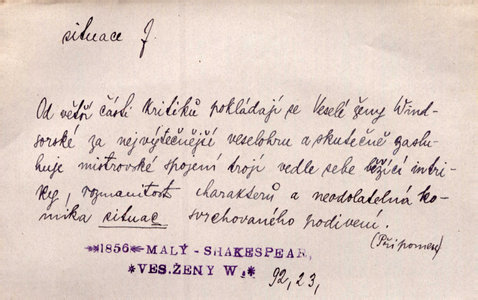 situace f.
Od větší části kritiků pokládají se Veselé ženy Wind-
sorské za nejvýtečnější veselohru a skutečně zaslu-
huje mistrovské spojení trojí vedle sebe běžící intri-
ky, rozmanitost charakterů a neodolatelná ko-
mika situac svrchovaného podivení.
(Připomen.)
*1856*MALÝ-SHAKESPEAR,
*VES.ŽENY W.* 92,23,